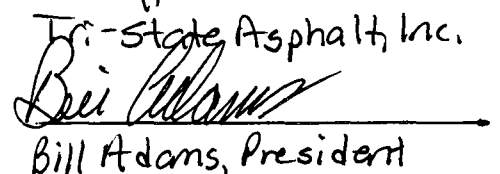 Tri-State Asphalt, Inc.
Bill Adams
Bill Adams, President